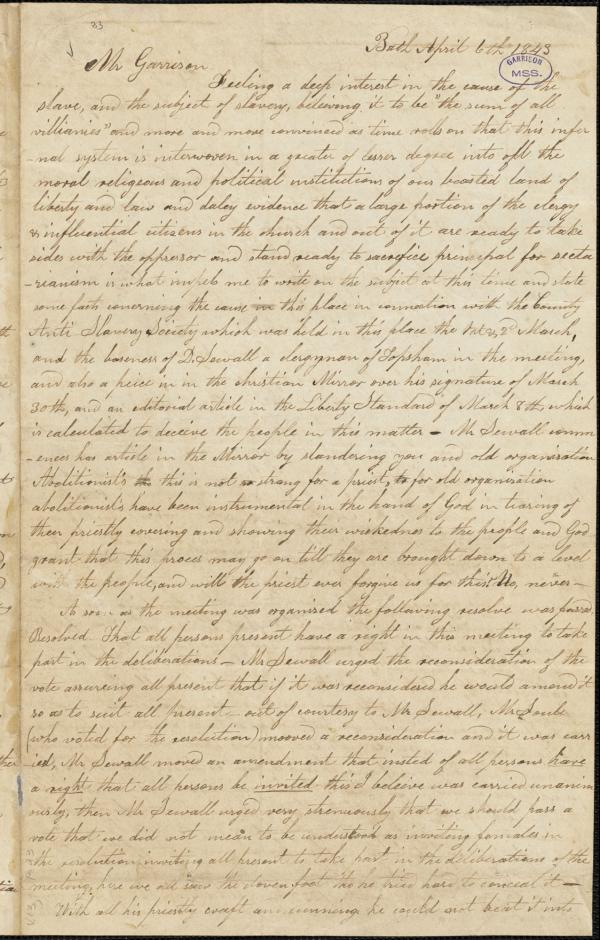 33
Bath April 6th 1843
GARRISON
MSS.
Mr Garrison
Feeling a deep interest in the cause of the
slave, and the subject of slavery, believing it to be "the sum of all
villianies" and more and more convinced as time rolls on that this infer
-nal system is interwoven in a greater of lesser degree into all the
moral religeous and political institutions of our boasted land of
liberty and law and daley evidence that a large portion of the clergy
& influential citizens in the church and out of it are ready to take
sides with the oppressor and stand ready to sacrefice principal for secta
-rianism is what impels me to write on the subject at this time and state
some facts concerning the cause in this place in connection with the County
Anti Slavery Society which was held in this place the 1st & 2d March,
and the baseness of D. Sewall a clergyman of Topsham in the meeting,
and also a peice in in the christian Mirror over his signature of March
30th, and an editorial article in the Liberty Standard of March 8th, which
is calculated to deceive the people in this matter – Mr Sewall comm
-ences his article in the Mirror by slandering you and old organisation
Abolitionists this is not strang for a priest, for old organisation
abolitionists have been instrumental in the hand of God in tearing of
their priestly covering and showing their wickedness to the people and God
grant that this proces may go on till they are brought down to a level
with the people, and will the priest ever forgive us for this? No, never –
As soon as the meeting was organised the following resolve was passed
Resolved That all persons present have a right in this meeting to take
part in the deliberations – Mr Sewall urged the reconsideration of the
vote assureing all present that if it was reconsidered he would amend it
so as to suit all present – out of courtesy to Mr Sewall, Mr Soule
(who voted for the resolution) mooved a reconsideration and it was carr
ied, Mr Sewall moved an amendment that insted of all persons have
a right that all persons be invited this I beleive was carried unanim
ously, then Mr Sewall urged very strenuously that we should pass a
vote that we did not mean to be understood as inviting females in
the resolution inviting all present to take part in the deliberations of the
meeting, here we all saw the cloven foot tho he tried hard to conceal it –
With all his priestly craft and cunning he could not beat it into